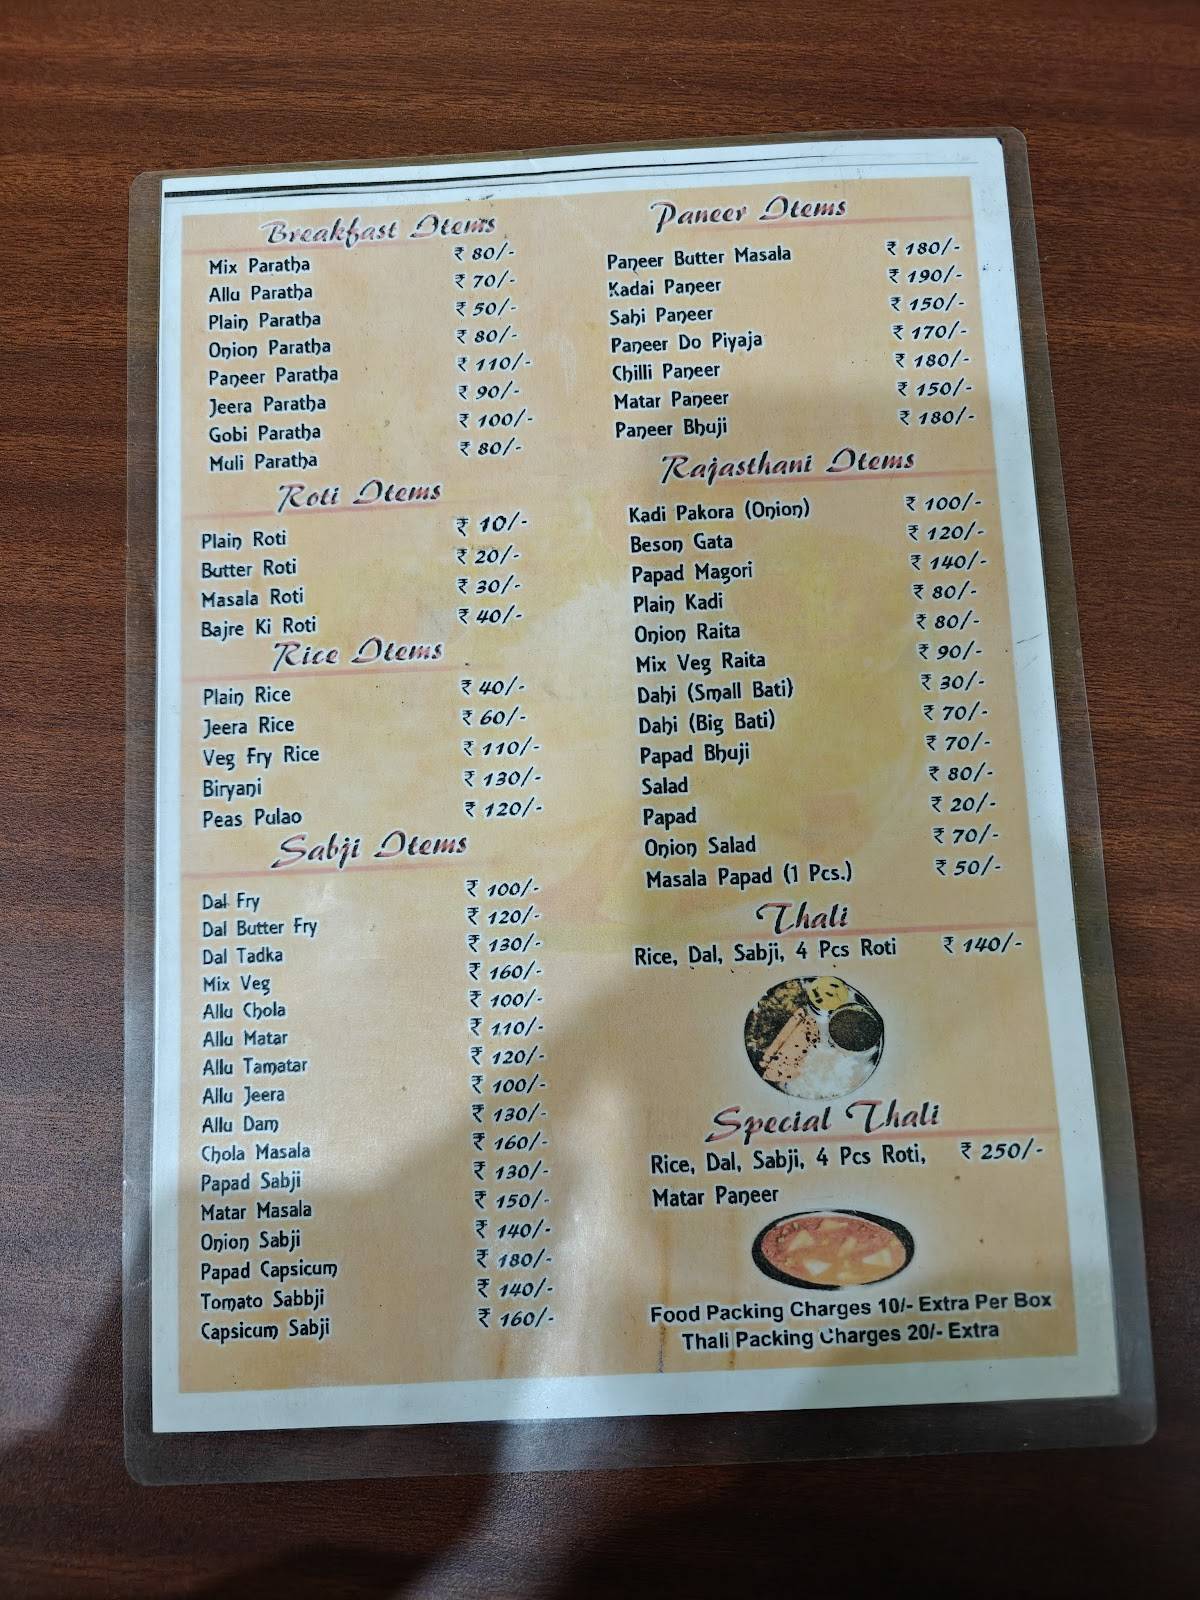 Breakfast Items
Mix Paratha ₹ 80/-
Allu Paratha ₹ 70/-
Plain Paratha ₹ 50/-
Onion Paratha ₹ 80/-
Paneer Paratha ₹ 110/-
Jeera Paratha ₹ 90/-
Gobi Paratha ₹ 100/-
Muli Paratha ₹ 80/-
Roti Items
Plain Roti ₹ 10/-
Butter Roti ₹ 20/-
Masala Roti ₹ 30/-
Bajre Ki Roti ₹ 40/-
Rice Items
Plain Rice ₹ 40/-
Jeera Rice ₹ 60/-
Veg Fry Rice ₹ 110/-
Biryani ₹ 130/-
Peas Pulao ₹ 120/-
Sabji Items
Dal Fry ₹ 100/-
Dal Butter Fry ₹ 120/-
Dal Tadka ₹ 130/-
Mix Veg ₹ 160/-
Allu Chola ₹ 100/-
Allu Matar ₹ 110/-
Allu Tamatar ₹ 120/-
Allu Jeera ₹ 100/-
Allu Dam ₹ 130/-
Chola Masala ₹ 160/-
Papad Sabji ₹ 130/-
Matar Masala ₹ 150/-
Onion Sabji ₹ 140/-
Papad Capsicum ₹ 180/-
Tomato Sabbji ₹ 140/-
Capsicum Sabji ₹ 160/-
Paneer Items
Paneer Butter Masala ₹ 180/-
Kadai Paneer ₹ 190/-
Sahi Paneer ₹ 150/-
Paneer Do Piyaja ₹ 170/-
Chilli Paneer ₹ 180/-
Matar Paneer ₹ 150/-
Paneer Bhuji ₹ 180/-
Rajasthani Items
Kadi Pakora (Onion) ₹ 100/-
Beson Gata ₹ 120/-
Papad Magori ₹ 140/-
Plain Kadi ₹ 80/-
Onion Raita ₹ 80/-
Mix Veg Raita ₹ 90/-
Dahi (Small Bati) ₹ 30/-
Dahi (Big Bati) ₹ 70/-
Papad Bhuji ₹ 70/-
Salad ₹ 80/-
Papad ₹ 20/-
Onion Salad ₹ 70/-
Masala Papad (1 Pcs.) ₹ 50/-
Thali
Rice, Dal, Sabji, 4 Pcs Roti ₹ 140/-
Special Thali
Rice, Dal, Sabji, 4 Pcs Roti, ₹ 250/-
Matar Paneer
Food Packing Charges 10/- Extra Per Box
Thali Packing Charges 20/- Extra